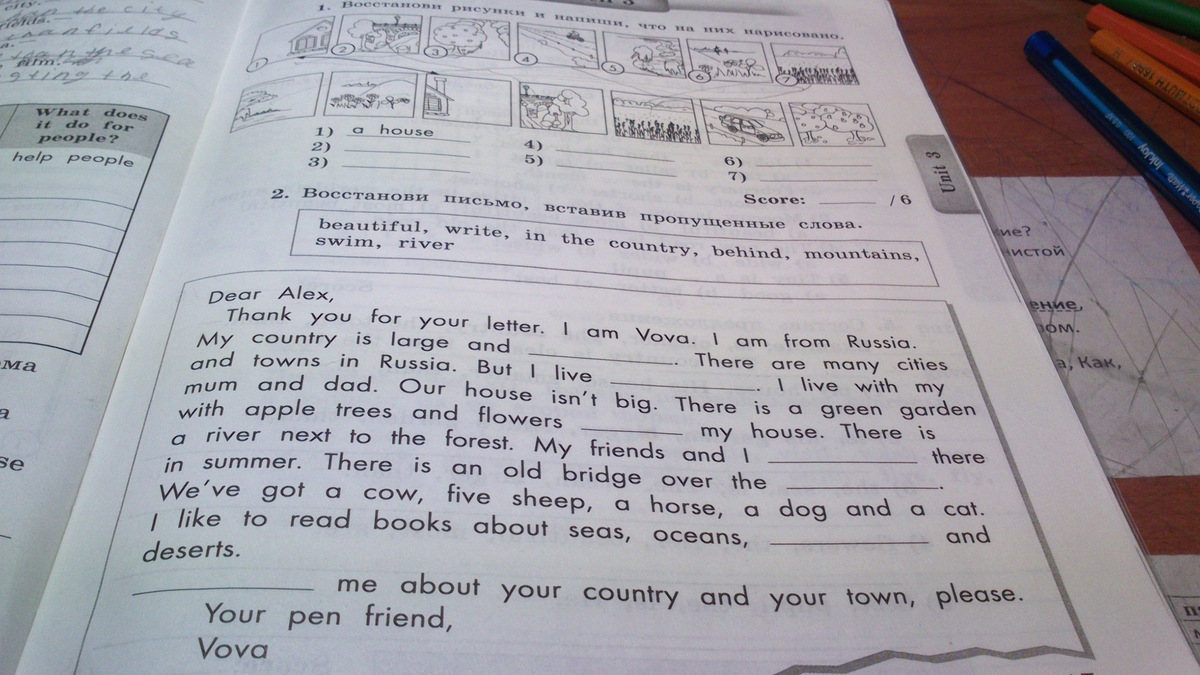 city.
in the city
fields.
film.
the
What does
it do for
people?
help people
ма
а
se
1. Восстанови рисунки и напиши, что на них нарисовано.
1 2 3 4 5 6 7
1) a house
2)
3)
4)
5)
6)
7)
Score: ______ / 6
Unit 3
2. Восстанови письмо, вставив пропущенные слова.
beautiful, write, in the country, behind, mountains,
swim, river
Dear Alex,
Thank you for your letter. I am Vova. I am from Russia.
My country is large and ______. There are many cities
and towns in Russia. But I live ______. I live with my
mum and dad. Our house isn't big. There is a green garden
with apple trees and flowers ______ my house. There is
a river next to the forest. My friends and I ______ there
in summer. There is an old bridge over the ______.
We've got a cow, five sheep, a horse, a dog and a cat.
I like to read books about seas, oceans, ______ and
deserts.
______ me about your country and your town, please.
Your pen friend,
Vova
ие?
истой
ение,
ом.
а, Как,